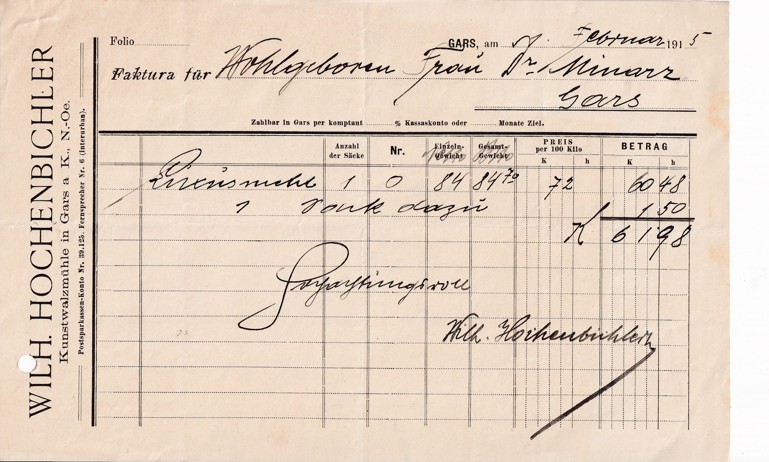 WILH. HOCHENBICHLER
Kunstwalzmühle in Gars a K., N.-Oe.
Postsparkassen-Konto Nr. 39.125. Fernsprecher Nr. 6 (interurban).
Folio
GARS, am Februar 1915
Faktura für Wohlgeboren Frau Dr Minarz
Gars
Zahlbar in Gars per komptant % Kassaskonto oder Monate Ziel.
Anzahl der Säcke Nr. Einzeln-Gewicht Gesamt-Gewicht PREIS per 100 Kilo K h BETRAG K h
Luxusmehl 1 0 84 84 70 72 60 48
1 Sack dazu 1 50
K 61 98
Hochachtungsvoll
Wilh. Hochenbichler